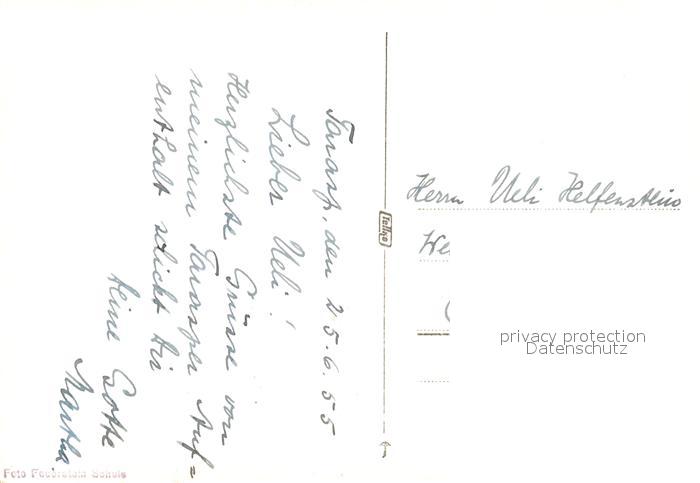 Tarasp, den 25.6.55
Lieber Ueli!
Herzlichste Grüsse von
meinem Tarasper Auf=
enthalt schickt Dir
Deine Gotte
Martha
Herrn Ueli Helfenstein
We
Tellko
privacy protection
Datenschutz
Foto Feuerstein Schuls